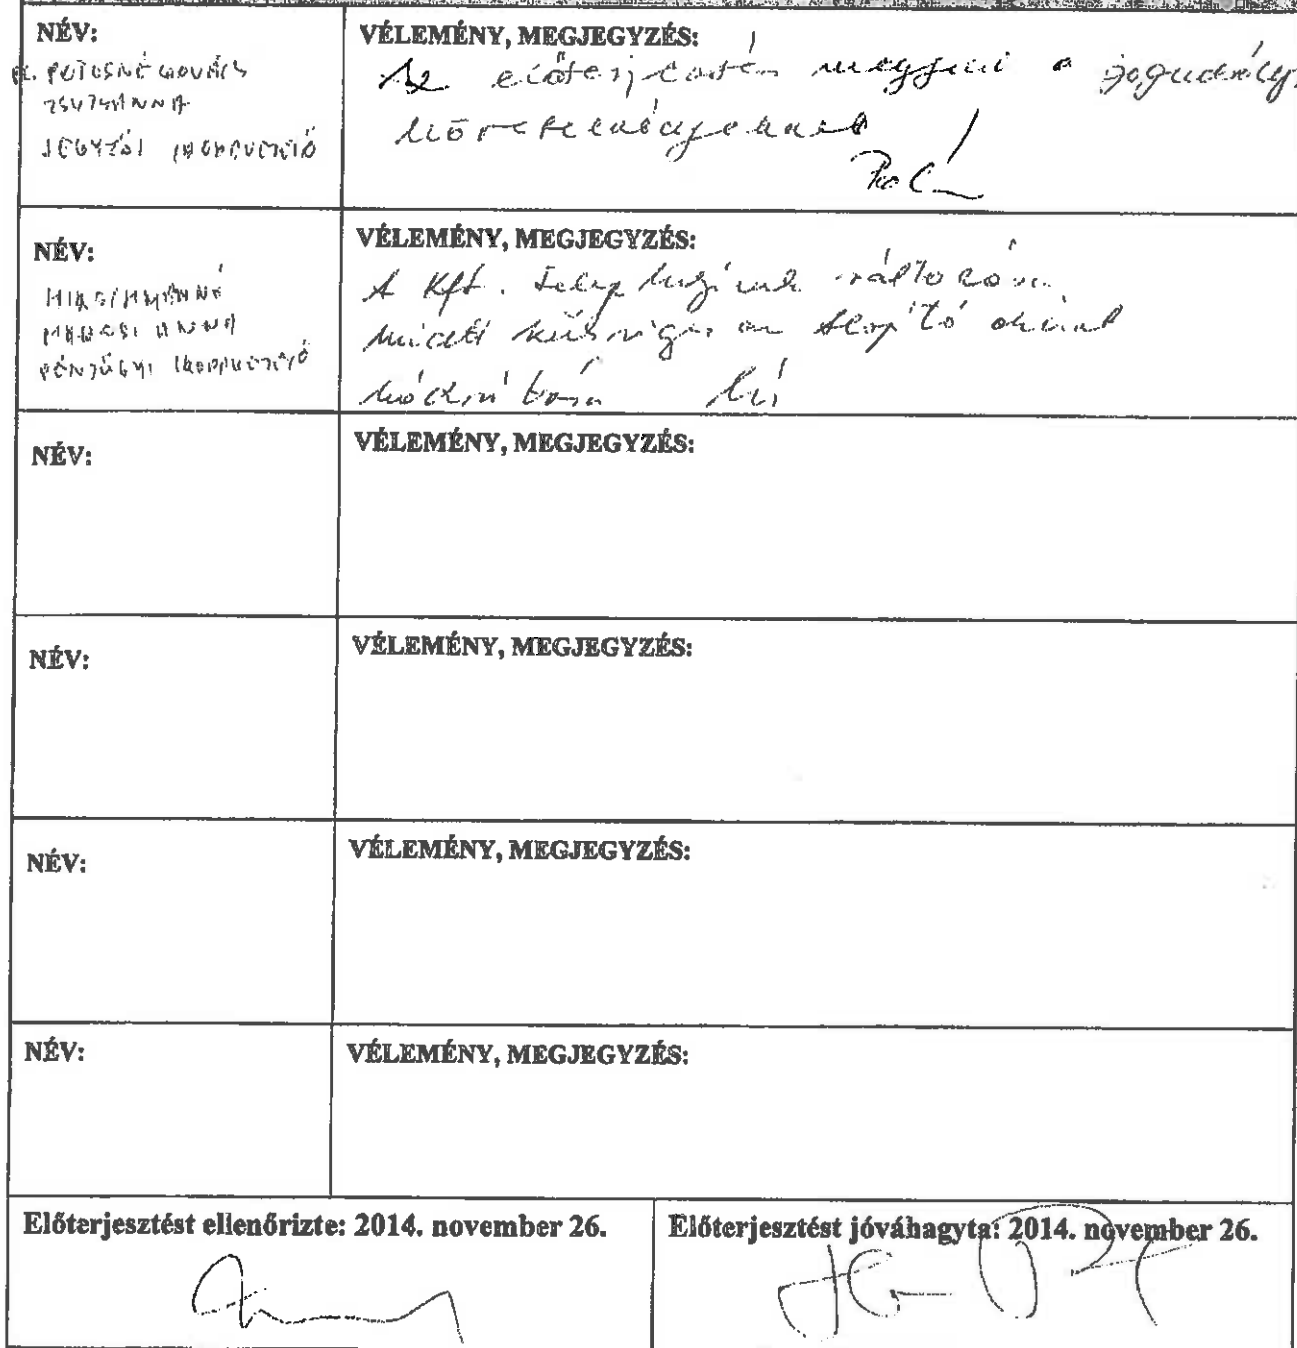 NÉV:
ZSUZSANNA
JEGYZŐI
VÉLEMÉNY, MEGJEGYZÉS:
Az előterjesztés megfelel a
követelményeknek
NÉV:
ANNA
PÉNZÜGYI
VÉLEMÉNY, MEGJEGYZÉS:
A Kft. változása
miatt szükséges az alapító okirat
módosítása
NÉV:
VÉLEMÉNY, MEGJEGYZÉS:
NÉV:
VÉLEMÉNY, MEGJEGYZÉS:
NÉV:
VÉLEMÉNY, MEGJEGYZÉS:
NÉV:
VÉLEMÉNY, MEGJEGYZÉS:
Előterjesztést ellenőrizte: 2014. november 26.
Előterjesztést jóváhagyta: 2014. november 26.